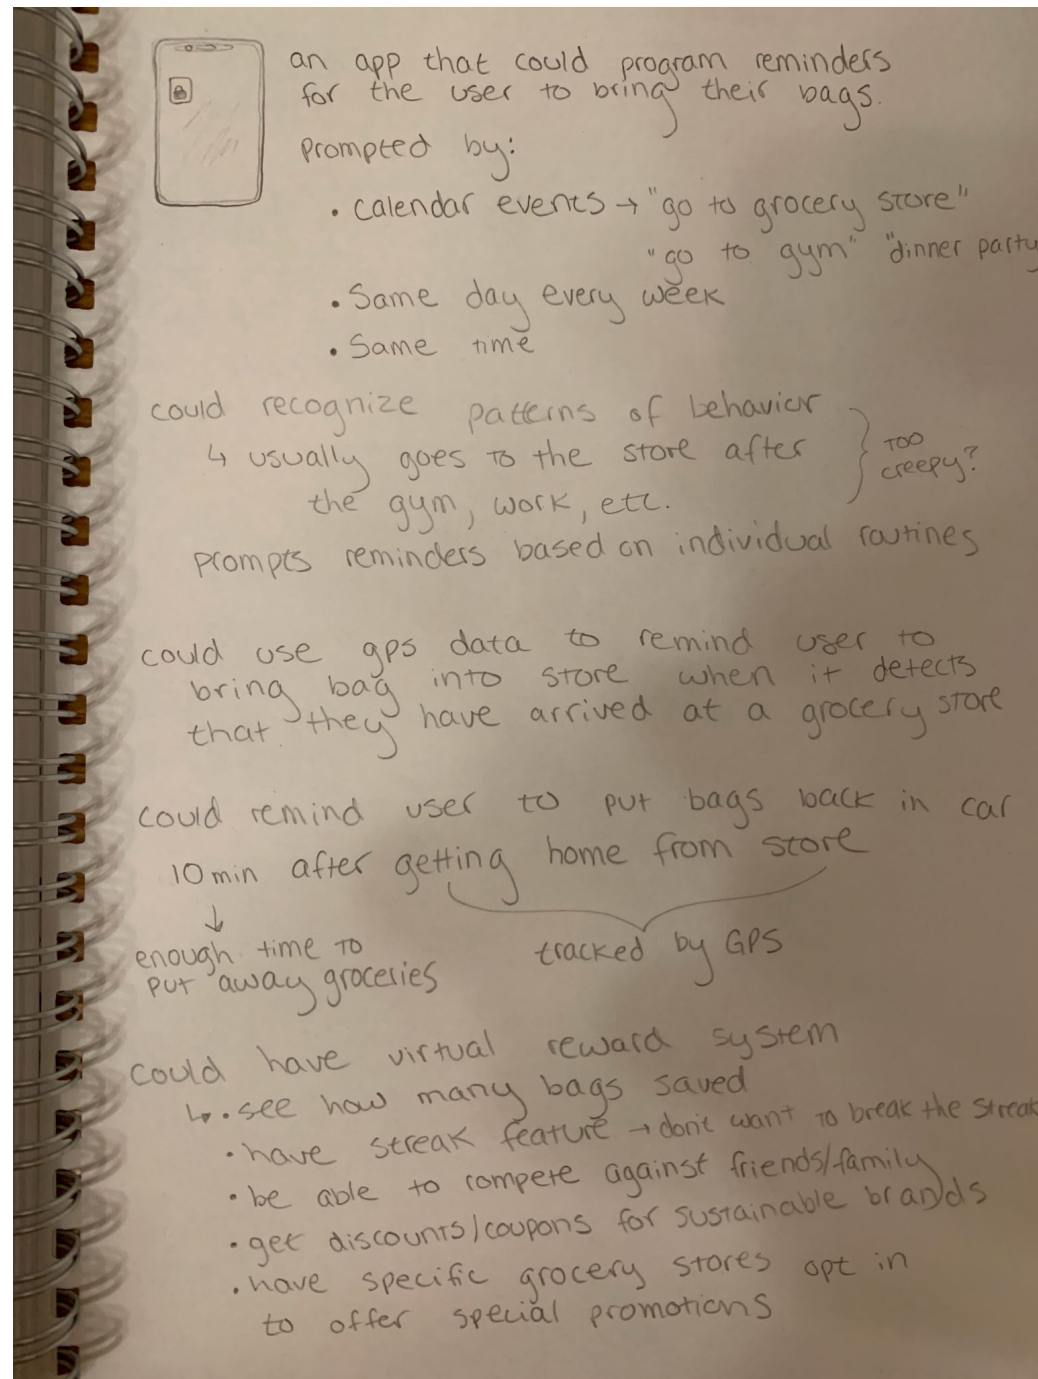 an app that could program reminders
for the user to bring their bags.
prompted by:
• calendar events → "go to grocery store"
"go to gym" "dinner party
• Same day every week
• Same time
could recognize patterns of behavior
↳ usually goes to the store after
the gym, work, etc.
too
creepy?
prompts reminders based on individual routines
could use gps data to remind user to
bring bag into store when it detects
that they have arrived at a grocery store
could remind user to put bags back in car
10 min after getting home from store
↓
enough time to
put away groceries
tracked by GPS
could have virtual reward system
↳ • see how many bags saved
• have streak feature → don't want to break the streak
• be able to compete against friends/family
• get discounts/coupons for sustainable brands
• have specific grocery stores opt in
to offer special promotions